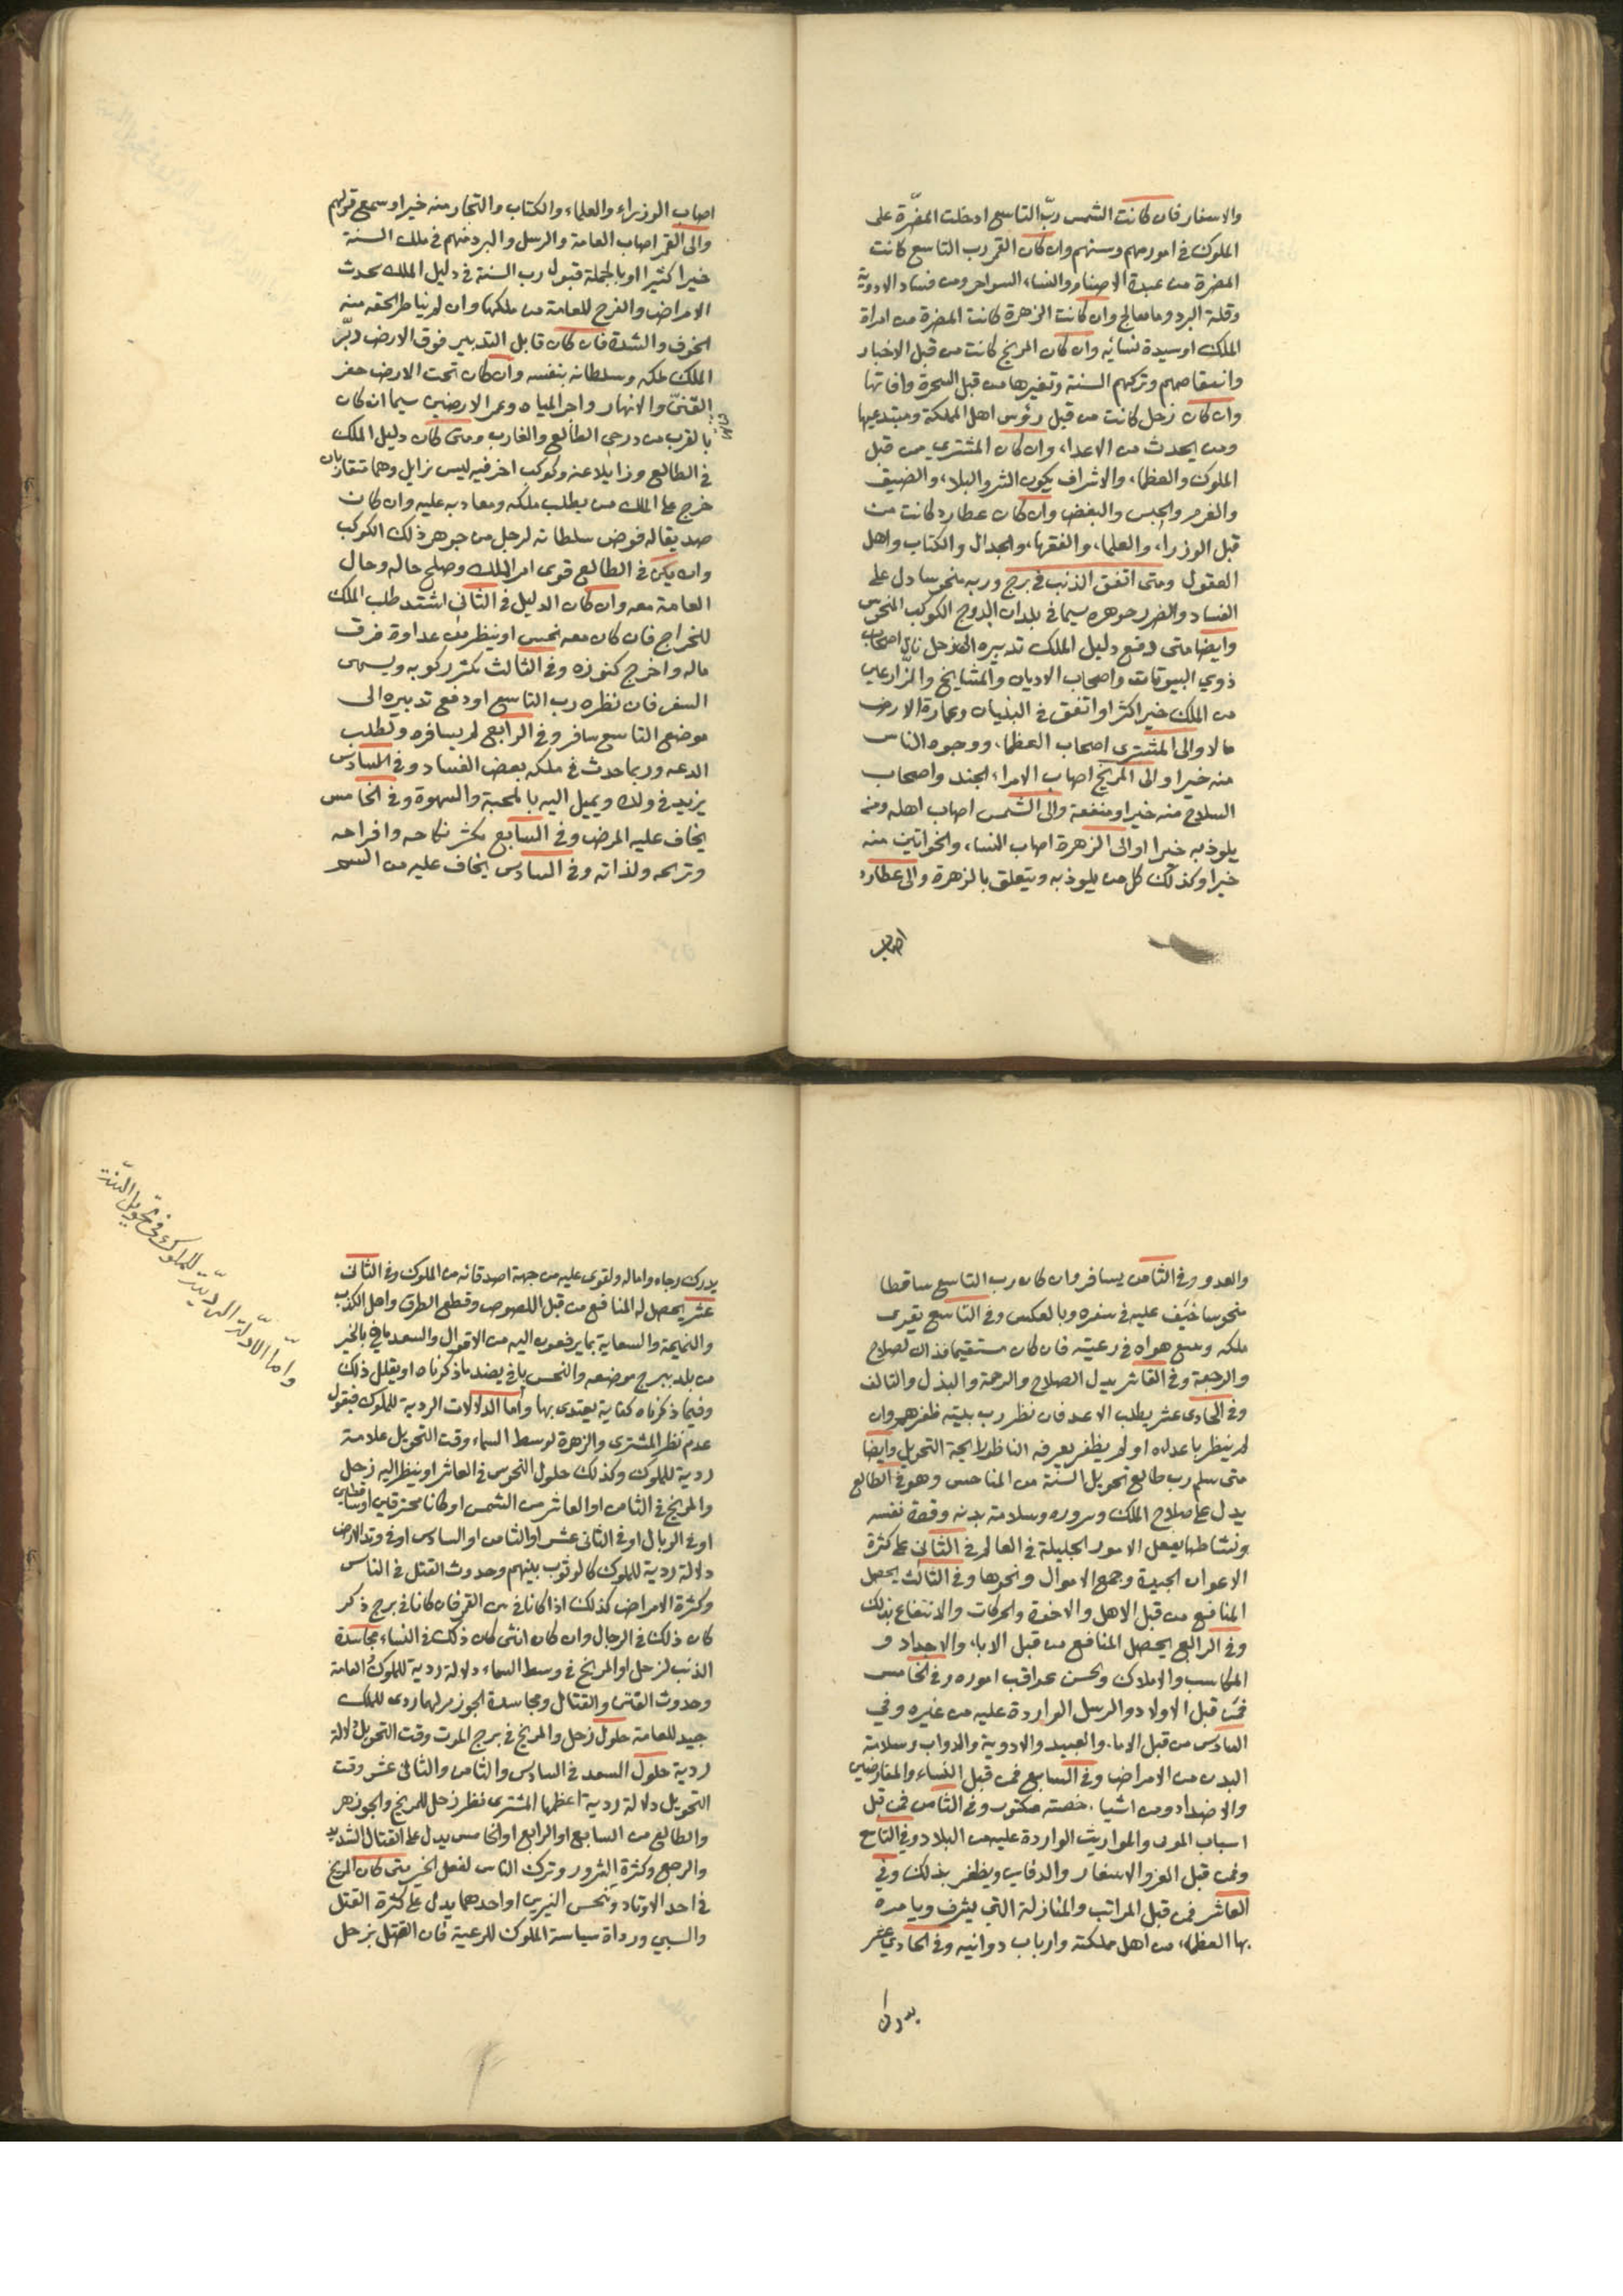 والاسفار فان كانت الشمس ربّ التاسع ادخلت المضرّة على
الملوك في امورمهم وسنهم وان كان القمر رب التاسع كانت
المضرة من عبدة الاصنام والنساء السواحر ومن فساد الادوية
وقلة البرد وما معالج وان كانت الزهرة كانت المضرة من امراة
الملك او سيدة نسائه وان كان المريخ كانت من قبل الاخبار
وانتقاصهم وتركهم السنة وتغيرها من قبل السحرة وافاتها
وان كان زحل كانت من قبل رؤس اهل المملكة ومبتدعيها
ومن يحدث من الاعداء وان كان المشتري من قبل
الملوك والعظماء والاشراف يكون الشر والبلاء والضيق
والغرم والحبس والبغض وان كان عطارد كانت من
قبل الوزراء والعلماء والفقهاء والجدال والكتاب واهل
العقول ومتى اتفق الذنب في برج وربه منحوسا دل على
الفساد والضرر جوهره سيما في بلدان البروج الكوكب المنحوس
وايضا متى دفع دليل الملك تدبيره الى زحل نال اصحاب
ذوي البيوتات واصحاب الاديان والمشايخ والزارعين
من الملك خيرا كثرا واتفق في البنيان وعمارة الارض
مالا والى المشتري اصحاب العظماء ووجوه الناس
منه خيرا والى المريخ اصاب الامراء الجند واصحاب
السلاح منه خيرا ومنفعة والى الشمس اصاب اهله ومن
يلوذ به خيرا والى الزهرة اصاب النساء والخواتين منه
خيرا وكذلك كل من يلوذ به ويتعلق بالزهرة والى عطارد
اصاب
اصاب الوزراء والعلماء والكتاب والتجار منه خيرا وسمع قولهم
والى القمر اصاب العامة والرسل والبرد منهم في ملك السنة
خيرا كثيرا وبالجملة قبول رب السنة في دليل الملك يحدث
الامراض والفرح للعامة من ملكها وان لم يناظر لحقه منه
الخوف والشدة فان كان قابل التدبير فوق الارض دبّر
الملك ملكه وسلطانه بنفسه وان كان تحت الارض حفر
القنيّ والانهار واجر المياه وعمر الارضين سيما ان كان
بالقرب من درجي الطالع والغارب ومتى كان دليل الملك
في الطالع وزايلا عنه وكوكب اخر فيه ليس زايل وهما متقاربان
خرج على الملك من يطلب ملكه ومعاديه عليه وان كان
صديقا له فوض سلطانه لرجل من جوهر ذلك الكوكب
وان يكن في الطالع قوي امر الملك وصلح حاله وحال
العامة معه وان كان الدليل في الثاني اشتد طلب الملك
للخراج فان كان معه نحس او ينظر من عداوة فرق
ماله واخرج كنوزه وفي الثالث يكثر ركوبه ويسمى
السفر فان نظره رب التاسع او دفع تدبيره الى
موضع التاسع سافر وفي الرابع لم يسافره ويطلب
الدعه وربما حدث في ملكه بعض الفساد وفي السادس
يزيد في ولده ويميل اليه بالمحبة والشهوة وفي الخامس
يخاف عليه المرض وفي السابع يكثر نكاحه وافراحه
وتزيحه ولذاته وفي السادس يخاف عليه من السم
والعدو وفي الثامن يسافر وان كان رب التاسع ساقطا
منحوسا خيف عليه في سفره وبالعكس وفي التاسع يقوى
ملكه ويسع هواه في رعيته فان كان مستقيما فذاك لصلاح
والرجعة وفي القاشر يدل الصلاح والرحمة والبذل والتالف
وفي الحادى عشر يطلب الاعد فان نظر رب بيته ظفر بهم وان
لم ينظر باعدله او لم يظفر يعرفه الناظر لايحة التحويل وايضا
متى سلم رب طالع تحويل السنة من المناحس وهو في الطالع
يدل على صلاح الملك وسروره وسلامة بدنه وقصة نفسه
ونشاطها يفعل الامور الجليلة في العالم في الثاني على كثرة
الاعوان الجيدة وجمع الاموال ونحوها وفي الثالث يحصل
المنافع من قبل الاهل والاخوة والحركات والانتفاع بذلك
وفي الرابع يحصل المنافع من قبل الاباء والاجداد و
المكاسب والاملاك وتحسن عواقب اموره وفي الخامس
فمن قبل الاولاد والرسل الواردة عليه من غيره وفي
السادس من قبل الاماء والعبيد والادوية والدواب وسلامة
البدن من الامراض وفي السابع فمن قبل النساء والمقارضين
والاضداد ومن اشياء خصته مكتوب وفي الثامن فمن قبل
اسباب الموت والمواريث الواردة عليه من البلاد وفي التاسع
وفمن قبل الغز والاسفار والدفاين ويظفر بذلك وفي
العاشر فمن قبل المراتب والمنازلة التي يشرف ويامره
بها العظماء من اهل مملكته وارباب دوانيه وفي الحادي عشر
يدرك
يدرك رجاه وامآله ويقوى عليه من جهة اصدقائه من الملوك وفي الثاني
عشر يحصل له المنافع من قبل اللصوص وقطع الطرق واهل الكذب
والنميمة والسعاية بما يرفعون اليه من الاقوال والسعد باقي بالخير
من بلد ببرج موضعه والنحس باقي يضد ماذكرناه او يقلل ذلك
وفيما ذكرناه كفاية يعتدى بها واما الدلالات الردية للملوك فيقول
عدم نظر المشترى والزهرة لوسط السماء وقت التحويل علامة
ردية للملوك وكذلك حلول النحوس في العاشر او ينظر اليه زحل
والمريخ في الثامن او العاشر من الشمس او كانا محترقين او ساقطين
او في الوبال او في الثاني عشر او الثامن او السادس او في وتد الارض
دلالة ردية للملوك كالوثوب بينهم وحدوث القتل في الناس
وكثرة الامراض كذلك اذا كانا في من القمر فان كانا في برج ذكر
كان ذلك في الرجال وان كان انثى كان ذلك في النساء مجاسدة
الذنب لزحل او المريخ في وسط السماء دلالة ردية للملوك والعامة
وحدوث الفتن والقتال ومجاسدة الجوزهر لهما ردى للملك
جيد للعامة حلول زحل والمريخ في برج الموت وقت التحويل دلالة
ردية حلول السعد في السادس والثامن والثاني عشر وقت
التحويل دلالة ردية اعظمها المشترى نظر زحل للمريخ والجوزهر
والطالع من السابع او الرابع او الخامس يدل على القتال الشديد
والرجع وكثرة الشرور وترك الناس لفعل الخير متى كان المريخ
في احد الاوتاد وينحس النيرين او احدهما يدل على كثرة القتل
والسبي ورداة سياسة الملوك للرعية فان اتصل بزحل
وامّا الادلّة الرديّة للملوك في تحويل السّنة